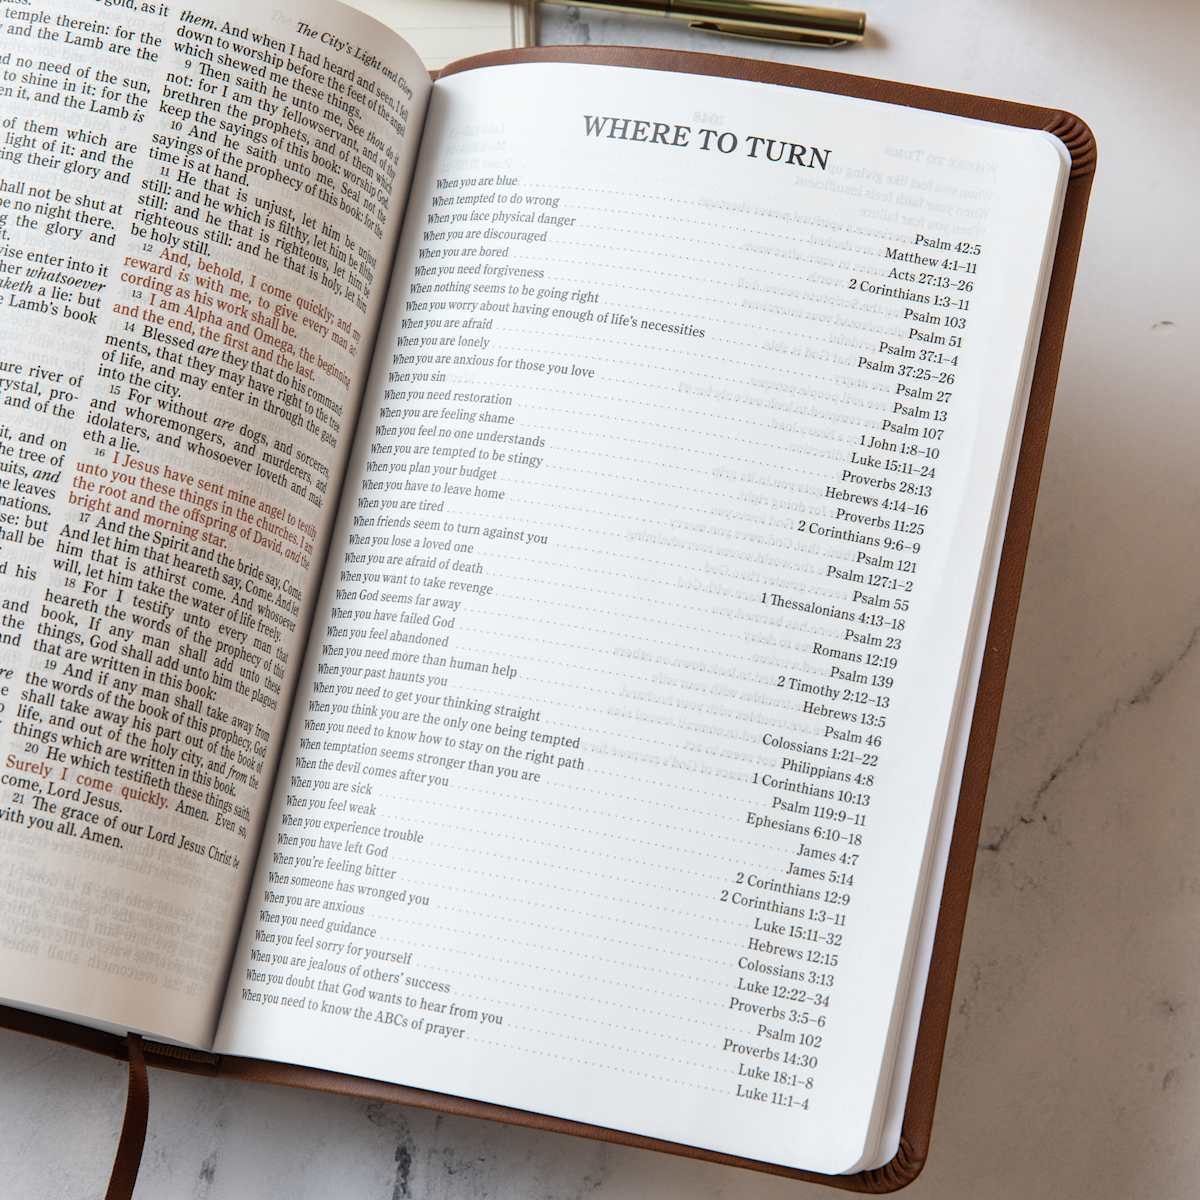 gold, as it
temple therein: for the
and the Lamb are the
no need of the sun,
to shine in it: for the
it, and the Lamb is
of them which are
light of it: and the
their glory and
shall not be shut at
be no night there.
the glory and
it.
enter into it
whatsoever
a lie: but
Lamb's book
river of
and of the
it, and on
tree of
and
leaves
nations.
but
be
his
and
the
and
The City's Light and Glory
them. And when I had heard and seen, I fell
down to worship before the feet of the angel
which shewed me these things.
9 Then saith he unto me, See thou do it
not: for I am thy fellowservant, and of thy
brethren the prophets, and of them which
keep the sayings of this book: worship God.
10 And he saith unto me, Seal not the
sayings of the prophecy of this book: for the
time is at hand.
11 He that is unjust, let him be unjust
still: and he which is filthy, let him be filthy
still: and he that is righteous, let him be
righteous still: and he that is holy, let him
be holy still.
12 And, behold, I come quickly; and my
reward is with me, to give every man ac-
cording as his work shall be.
13 I am Alpha and Omega, the beginning
and the end, the first and the last.
14 Blessed are they that do his command-
ments, that they may have right to the tree
of life, and may enter in through the gates
into the city.
15 For without are dogs, and sorcerers,
and whoremongers, and murderers, and
idolaters, and whosoever loveth and mak-
eth a lie.
16 I Jesus have sent mine angel to testify
unto you these things in the churches. I am
the root and the offspring of David, and the
bright and morning star.
17 And the Spirit and the bride say, Come.
And let him that heareth say, Come. And let
him that is athirst come. And whosoever
will, let him take the water of life freely.
18 For I testify unto every man that
heareth the words of the prophecy of this
book, If any man shall add unto these
things, God shall add unto him the plagues
that are written in this book:
19 And if any man shall take away from
the words of the book of this prophecy, God
shall take away his part out of the book of
life, and out of the holy city, and from the
things which are written in this book.
20 He which testifieth these things saith,
Surely I come quickly. Amen. Even so,
come, Lord Jesus.
21 The grace of our Lord Jesus Christ be
with you all. Amen.
WHERE TO TURN
When you are blue Psalm 42:5
When tempted to do wrong Matthew 4:1–11
When you face physical danger Acts 27:13–26
When you are discouraged 2 Corinthians 1:3–11
When you are bored Psalm 103
When you need forgiveness Psalm 51
When nothing seems to be going right Psalm 37:1–4
When you worry about having enough of life's necessities Psalm 37:25–26
When you are afraid Psalm 27
When you are lonely Psalm 13
When you are anxious for those you love Psalm 107
When you sin 1 John 1:8–10
When you need restoration Luke 15:11–24
When you are feeling shame Proverbs 28:13
When you feel no one understands Hebrews 4:14–16
When you are tempted to be stingy Proverbs 11:25
When you plan your budget 2 Corinthians 9:6–9
When you have to leave home Psalm 121
When you are tired Psalm 127:1–2
When friends seem to turn against you Psalm 55
When you lose a loved one 1 Thessalonians 4:13–18
When you are afraid of death Psalm 23
When you want to take revenge Romans 12:19
When God seems far away Psalm 139
When you have failed God 2 Timothy 2:12–13
When you feel abandoned Hebrews 13:5
When you need more than human help Psalm 46
When your past haunts you Colossians 1:21–22
When you need to get your thinking straight Philippians 4:8
When you think you are the only one being tempted 1 Corinthians 10:13
When you need to know how to stay on the right path Psalm 119:9–11
When temptation seems stronger than you are Ephesians 6:10–18
When the devil comes after you James 4:7
When you are sick James 5:14
When you feel weak 2 Corinthians 12:9
When you experience trouble 2 Corinthians 1:3–11
When you have left God Luke 15:11–32
When you're feeling bitter Hebrews 12:15
When someone has wronged you Colossians 3:13
When you are anxious Luke 12:22–34
When you need guidance Proverbs 3:5–6
When you feel sorry for yourself Psalm 102
When you are jealous of others' success Proverbs 14:30
When you doubt that God wants to hear from you Luke 18:1–8
When you need to know the ABCs of prayer Luke 11:1–4